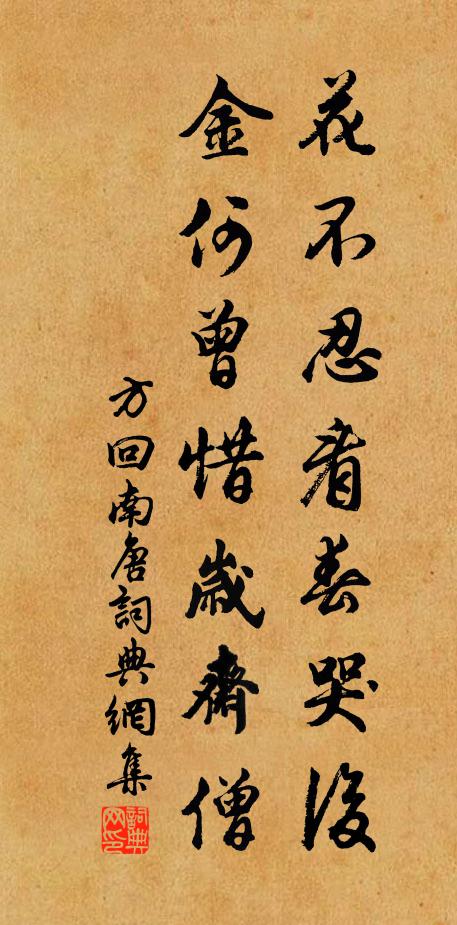 花不忍看春哭後
金何曾惜歲齋僧
方回南唐詞典網集
詞典网印